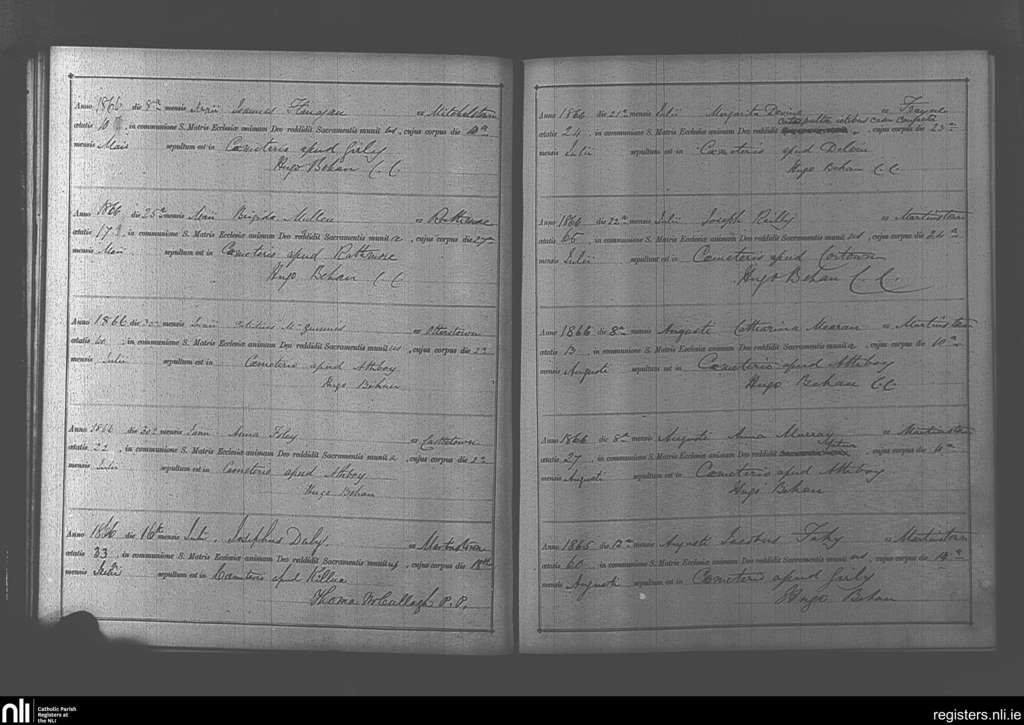 Anno 1866 die 8va mensis Maii Jacobus Flanagan ex Mitchelstown
ætatis 10 , in communione S. Matris Ecclesiæ animam Deo reddidit Sacramentis munitus , cujus corpus die 10a
mensis Maii sepultum est in Cœmeterio apud Girly
Hugo Behan C. C.
Anno 1866 die 25a mensis Maii Brigida Mullen ex Rathmore
ætatis 17 , in communione S. Matris Ecclesiæ animam Deo reddidit Sacramentis munita , cujus corpus die 27a
mensis Maii sepultum est in Cœmeterio apud Rathmore
Hugo Behan C. C.
Anno 1866 die 30a mensis Junii Mc ex Otterstown
ætatis 60 , in communione S. Matris Ecclesiæ animam Deo reddidit Sacramentis munitus , cujus corpus die 2a
mensis Julii sepultum est in Cœmeterio apud Athboy
Hugo Behan
Anno 1866 die 30a mensis Junii Anna Foley ex Castletown
ætatis 22 , in communione S. Matris Ecclesiæ animam Deo reddidit Sacramentis munita , cujus corpus die 2a
mensis Julii sepultum est in Cœmeterio apud Athboy
Hugo Behan
Anno 1866 die 16th mensis Julii Josephus Daly ex Martinstown
ætatis 33 , in communione S. Matris Ecclesiæ animam Deo reddidit Sacramentis munitus , cujus corpus die 18th
mensis Julii sepultum est in Cœmeterio apud Killua
Thoma McCullagh P. P.
Anno 1866 die 21a mensis Julii Margarita Devine ex Frayne
ætatis 24 , in communione S. Matris Ecclesiæ animam Deo reddidit , cujus corpus die 23a
mensis Julii sepultum est in Cœmeterio apud Delvin
Hugo Behan C. C.
Anno 1866 die 22a mensis Julii Joseph Reilly ex Martinstown
ætatis 65 , in communione S. Matris Ecclesiæ animam Deo reddidit Sacramentis munitus , cujus corpus die 24a
mensis Julii sepultum est in Cœmeterio apud Cortown
Hugo Behan C. C.
Anno 1866 die 8a mensis Augusti Catharina Mearan ex Martinstown
ætatis 13 , in communione S. Matris Ecclesiæ animam Deo reddidit Sacramentis munita , cujus corpus die 10a
mensis Augusti sepultum est in Cœmeterio apud Athboy
Hugo Behan CC
Anno 1866 die 8a mensis Augusti Anna Murray ex Martinstown
ætatis 27 , in communione S. Matris Ecclesiæ animam Deo reddidit , cujus corpus die
mensis Augusti sepultum est in Cœmeterio apud Athboy
Hugo Behan
Anno 1865 die 12a mensis Augusti Jacobus Fahy ex Martinstown
ætatis 60 , in communione S. Matris Ecclesiæ animam Deo reddidit Sacramentis munitus , cujus corpus die 14a
mensis Augusti sepultum est in Cœmeterio apud Girly
Hugo Behan
nli Catholic Parish
Registers at
the NLI
registers.nli.ie